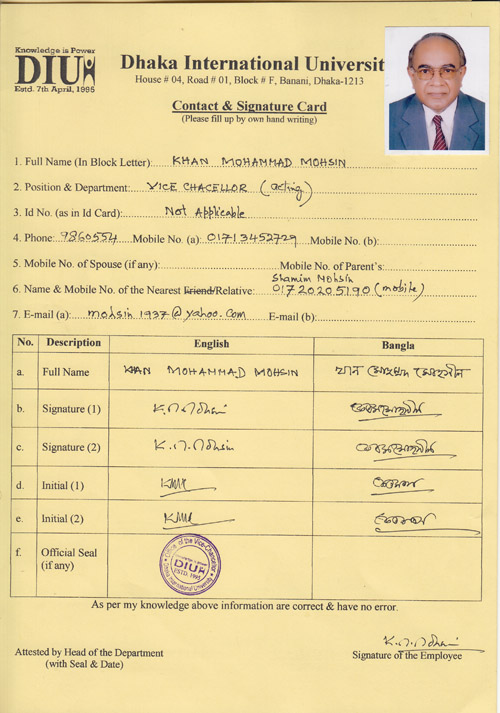 Knowledge is Power
DIU
Estd. 7th April, 1995
Dhaka International Universit
House # 04, Road # 01, Block # F, Banani, Dhaka-1213
Contact & Signature Card
(Please fill up by own hand writing)
1. Full Name (In Block Letter): KHAN MOHAMMAD MOHSIN
2. Position & Department: VICE CHACELLOR (acting)
3. Id No. (as in Id Card): Not Applicable
4. Phone: 9860554 Mobile No. (a) 01713452729 Mobile No. (b)
5. Mobile No. of Spouse (if any): Mobile No. of Parent's:
Shamim Mohsin
6. Name & Mobile No. of the Nearest Friend/Relative: 01720205190 (mobile)
7. E-mail (a): mohsin1937@yahoo.com E-mail (b)
No. Description English Bangla
a. Full Name KHAN MOHAMMAD MOHSIN খান মোহাম্মদ মোহসীন
b. Signature (1) K.M.Mohsin
c. Signature (2) K.M.Mohsin
d. Initial (1) KMM
e. Initial (2) KMM
f. Official Seal
(if any)
Office of the Vice-Chancellor
DIU
ESTD. 1995
Dhaka International University
As per my knowledge above information are correct & have no error.
K.M.Mohsin
Attested by Head of the Department Signature of the Employee
(with Seal & Date)